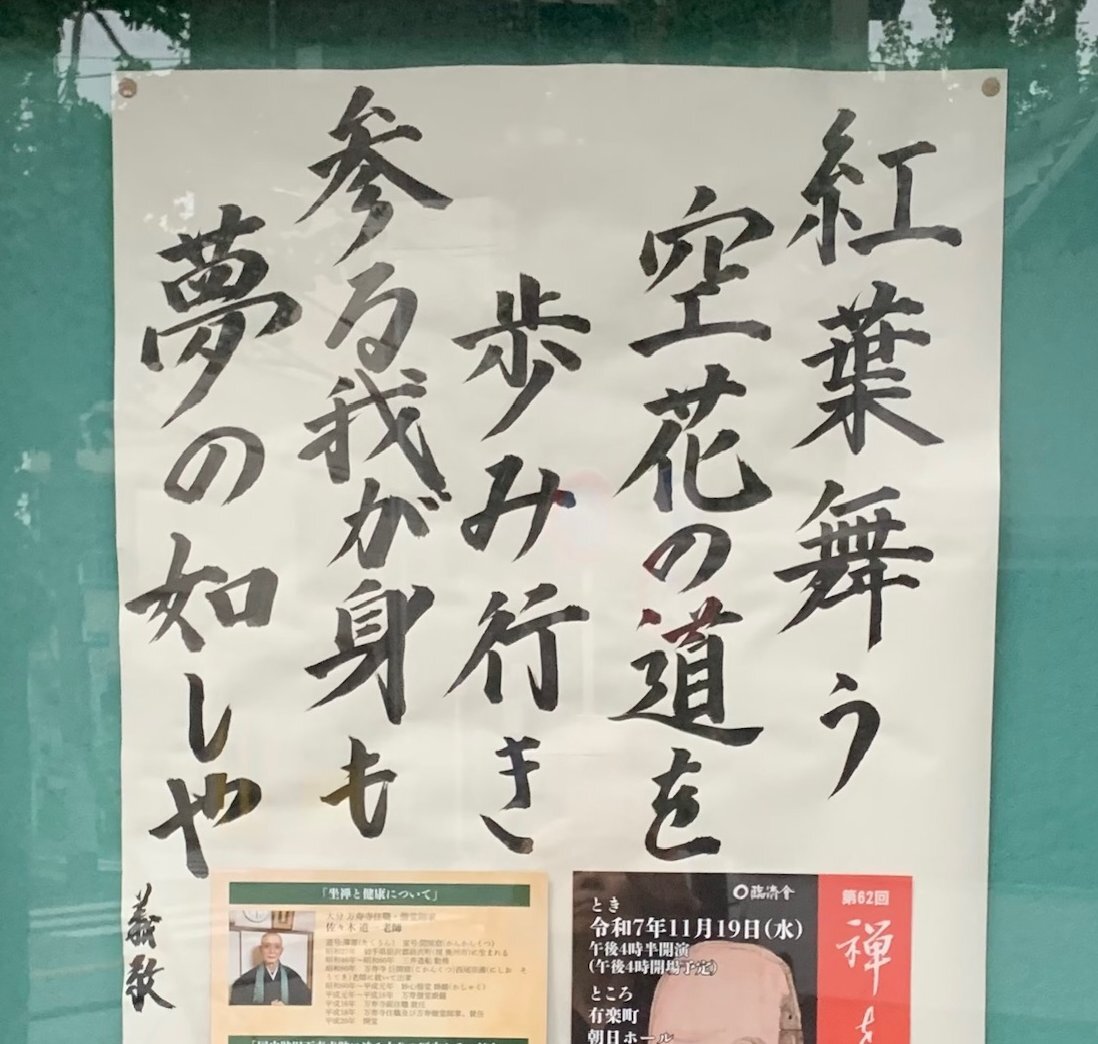 紅葉舞う
空花の道を
歩み行き
参る我が身も
夢の如しや
義教
「坐禅と健康について」
大分 万寿寺住職・僧堂師家
佐々木 道一 老師
臨済会
第62回
禅を
とき
令和7年11月19日(水)
午後4時半開演
(午後4時開場予定)
ところ
有楽町
朝日ホール